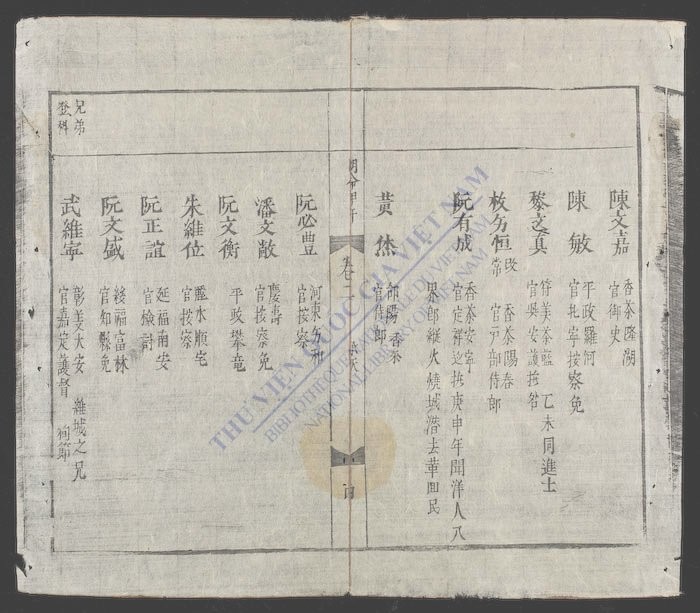 陳文嘉
香茶隆湖
官御史
陳敏
平政羅河
官北寧按察免
黎文真
乙未同進士
恒
改
常
香茶陽春
官户部侍郎
阮有成
香茶安寧
官定祥巡撫庚申年聞洋人入
界郎縱火燒城潛去革回民
黄
香茶
官侍郎
明命甲午
卷二
阮必豊
官按察
潘文敞
慶壽
官按察免
阮文衡
平政攀竜
朱維位
麗水順宅
官按察
阮正誼
延福南安
官檢討
阮文盛
綏福富林
官知縣免
武維寧
彰義大安
維城之兄
官嘉定護督
殉節
兄弟
登科
THƯ VIỆN QUỐC GIA VIỆT NAM
BIBLIOTHÈQUE NATIONALE DU VIETNAM
NATIONAL LIBRARY OF VIETNAM